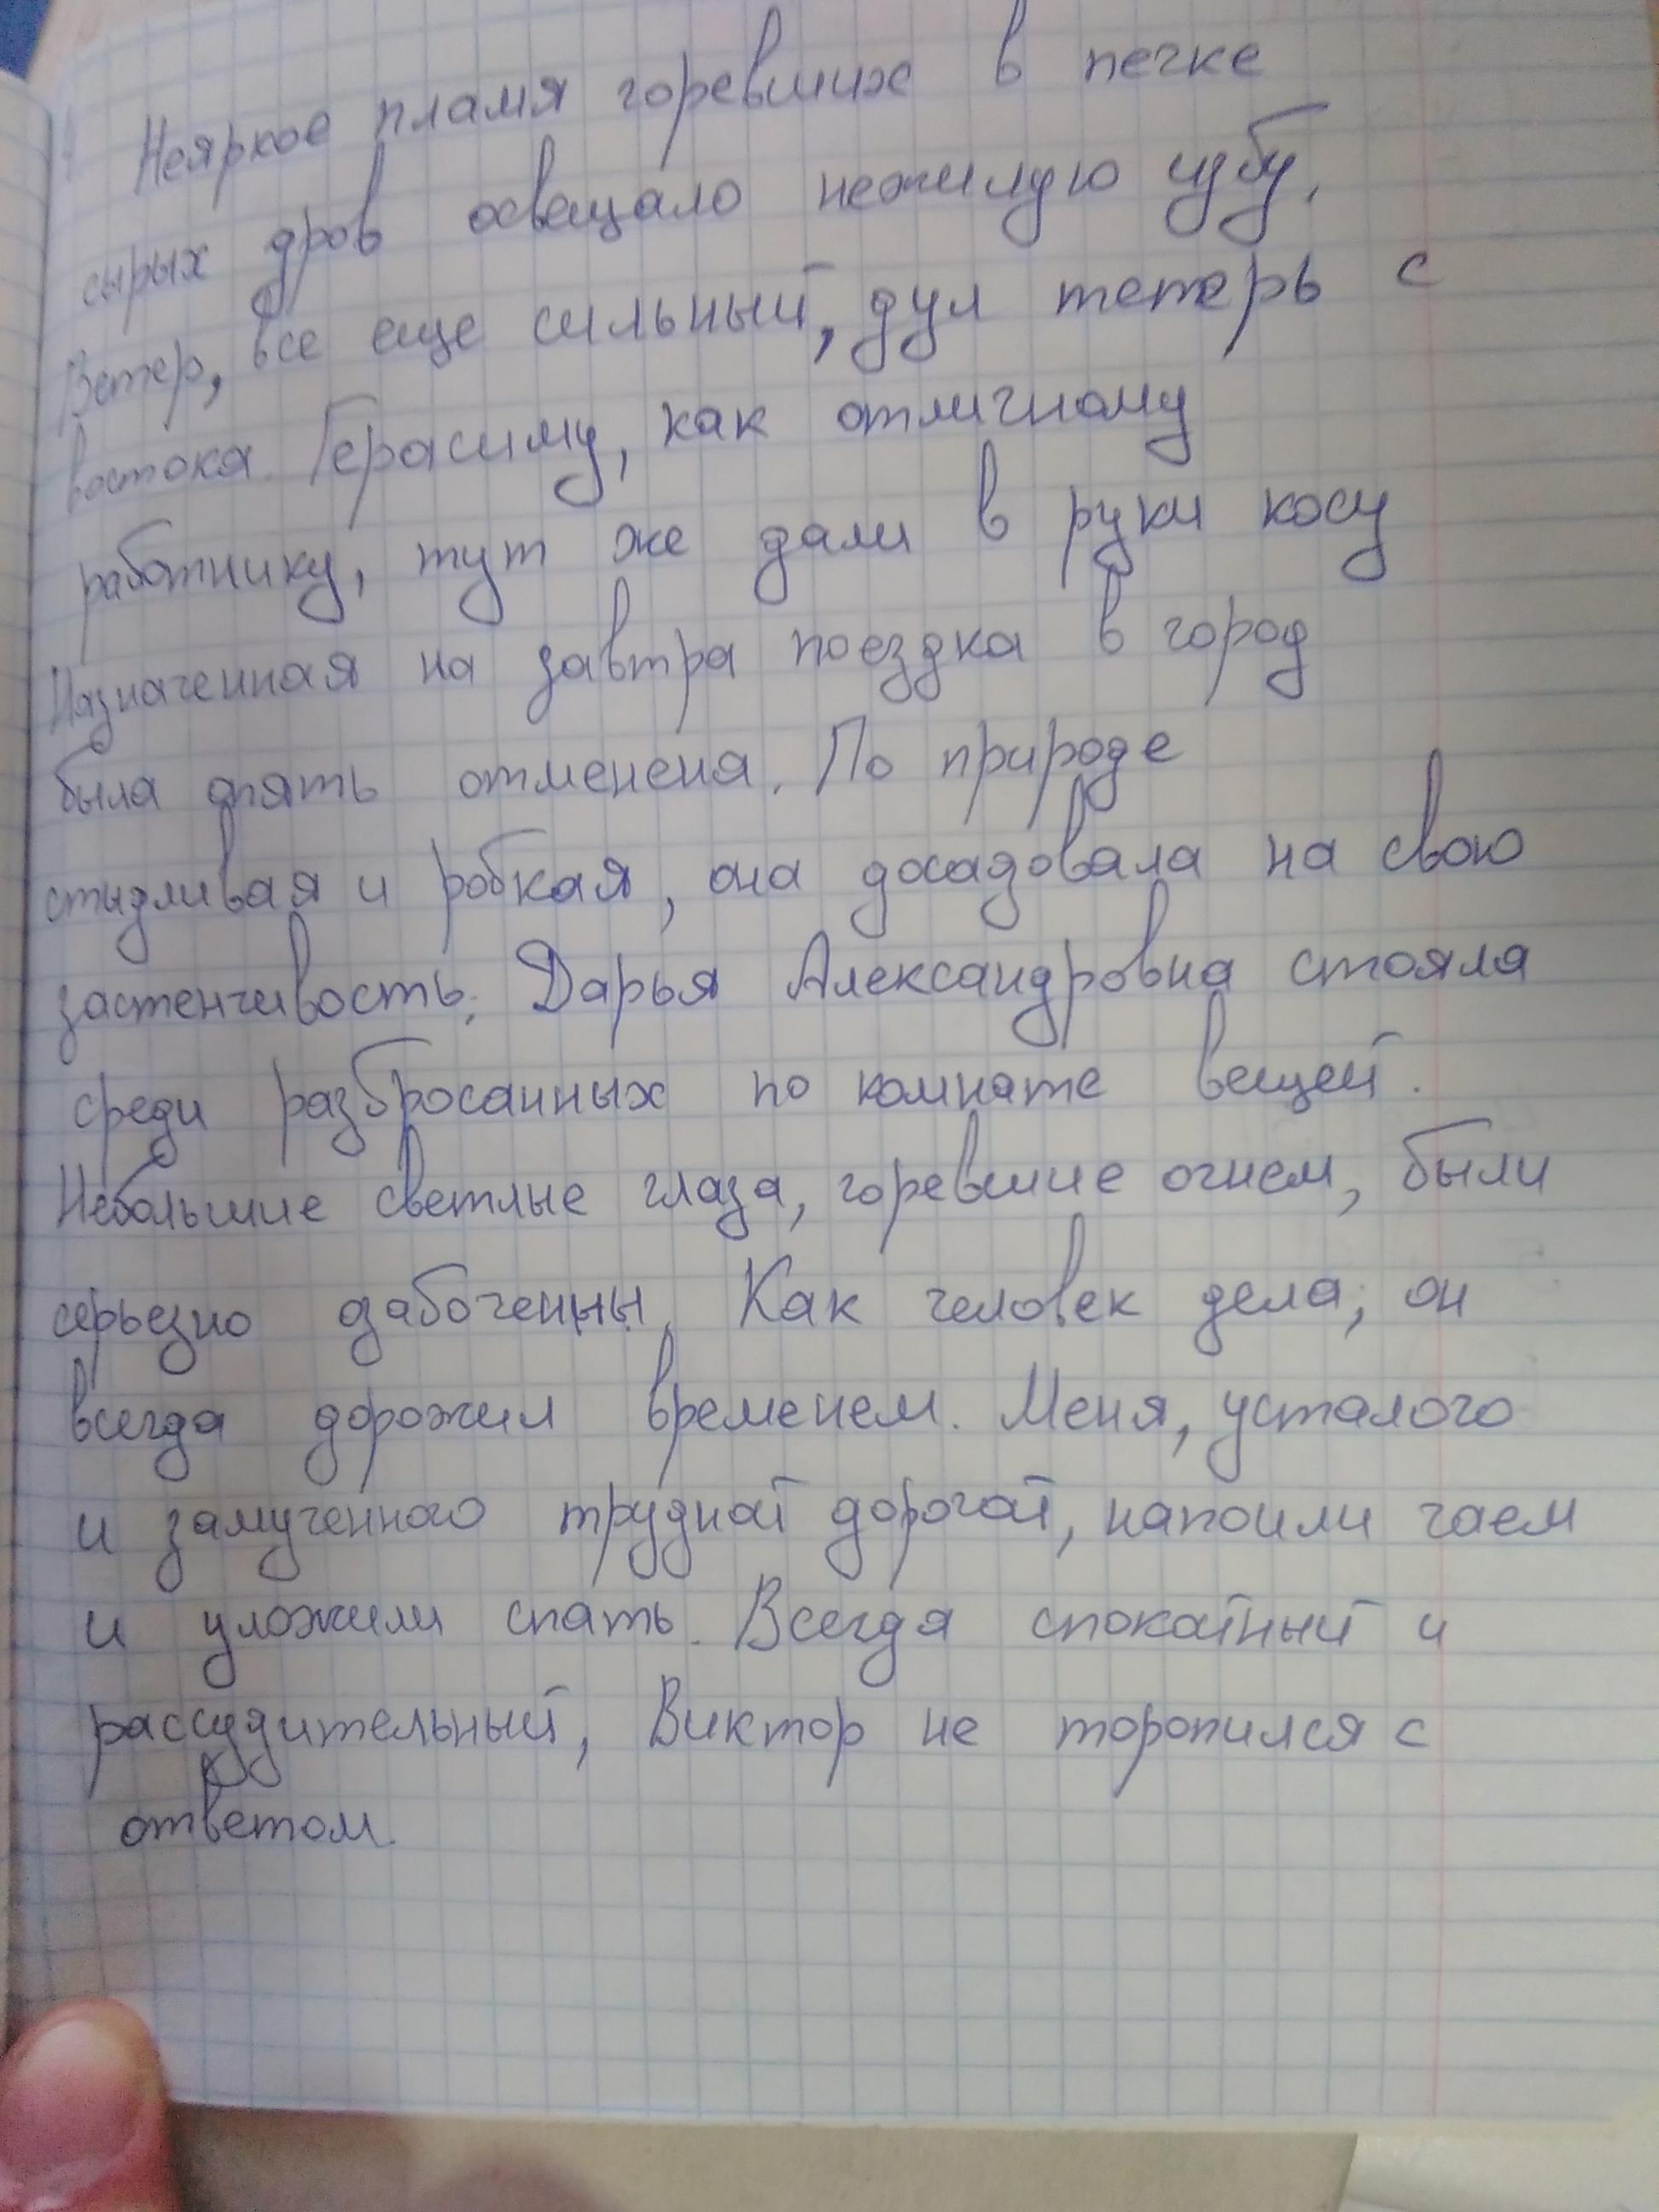 Неяркое пламя горевших в печке
сырых дров освещало нежилую избу.
Ветер, все еще сильный, дул теперь с
востока. Герасиму, как отличному
работнику, тут же дали в руки косу
Назначенная на завтра поездка в город
была опять отменена. По природе
стыдливая и робкая, она досадовала на свою
застенчивость. Дарья Александровна стояла
среди разбросанных по комнате вещей.
Небольшие светлые глаза, горевшие огнем, были
серьезно озабочены. Как человек дела, он
всегда дорожил временем. Меня, усталого
и замученного трудной дорогой, напоили чаем
и уложили спать. Всегда спокойный и
рассудительный, Виктор не торопился с
ответом.